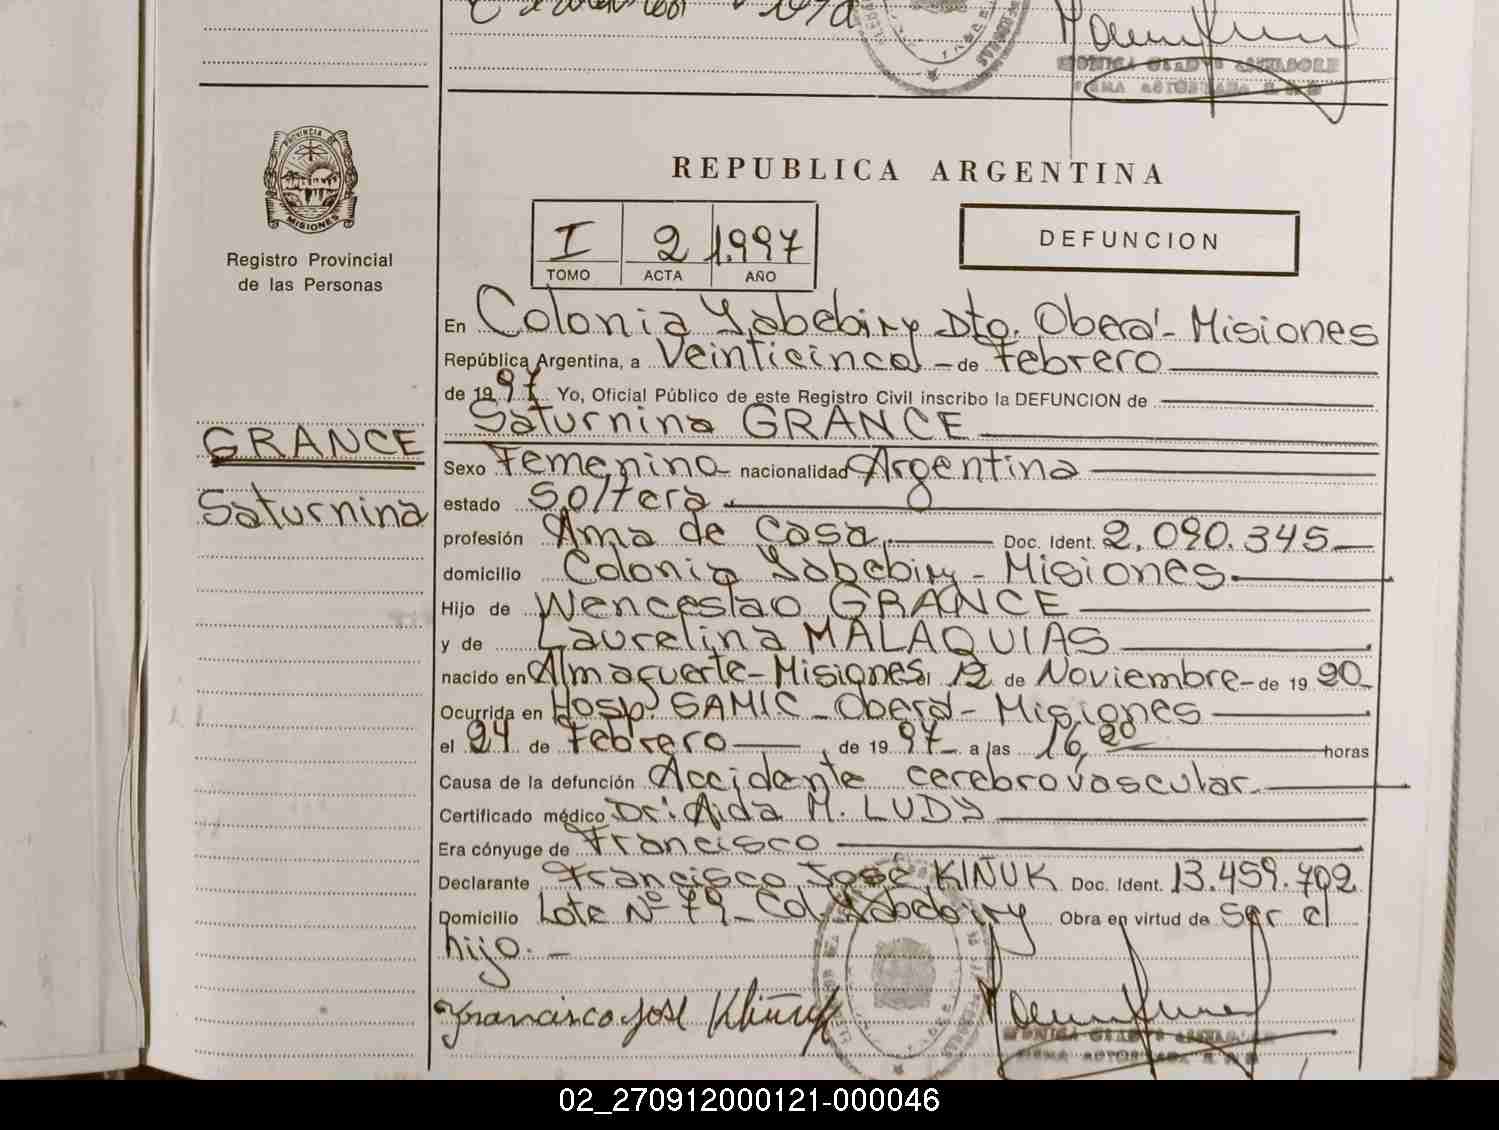 PROVINCIA DE
MISIONES
Registro Provincial
de las Personas
GRANCE
Saturnina
REPUBLICA ARGENTINA
I 2 1.997
TOMO ACTA AÑO
DEFUNCION
En Colonia Yabebiry Dto. Oberá - Misiones
República Argentina, a Veinticinco - de Febrero
de 1997 Yo, Oficial Público de este Registro Civil inscribo la DEFUNCION de
Saturnina GRANCE
Sexo Femenino nacionalidad Argentina
estado Soltera
profesión Ama de Casa Doc. Ident. 2.090.345
domicilio Colonia Yabebiry - Misiones
Hijo de Wenceslao GRANCE
y de Laurelina MALAQUIAS
nacido en Almafuerte - Misiones el 12 de Noviembre - de 19 20
Ocurrida en Hosp. SAMIC - Oberá - Misiones
el 24 de Febrero , de 1997 a las 16,20 horas
Causa de la defunción Accidente cerebrovascular
Certificado médico Dr: Aida M. LUDY
Era cónyuge de Francisco
Declarante Francisco José KIÑUK Doc. Ident. 13.459.702
Domicilio Lote Nº 79 - Col. Yabebiry Obra en virtud de ser el
hijo. -
Francisco José
02_270912000121-000046